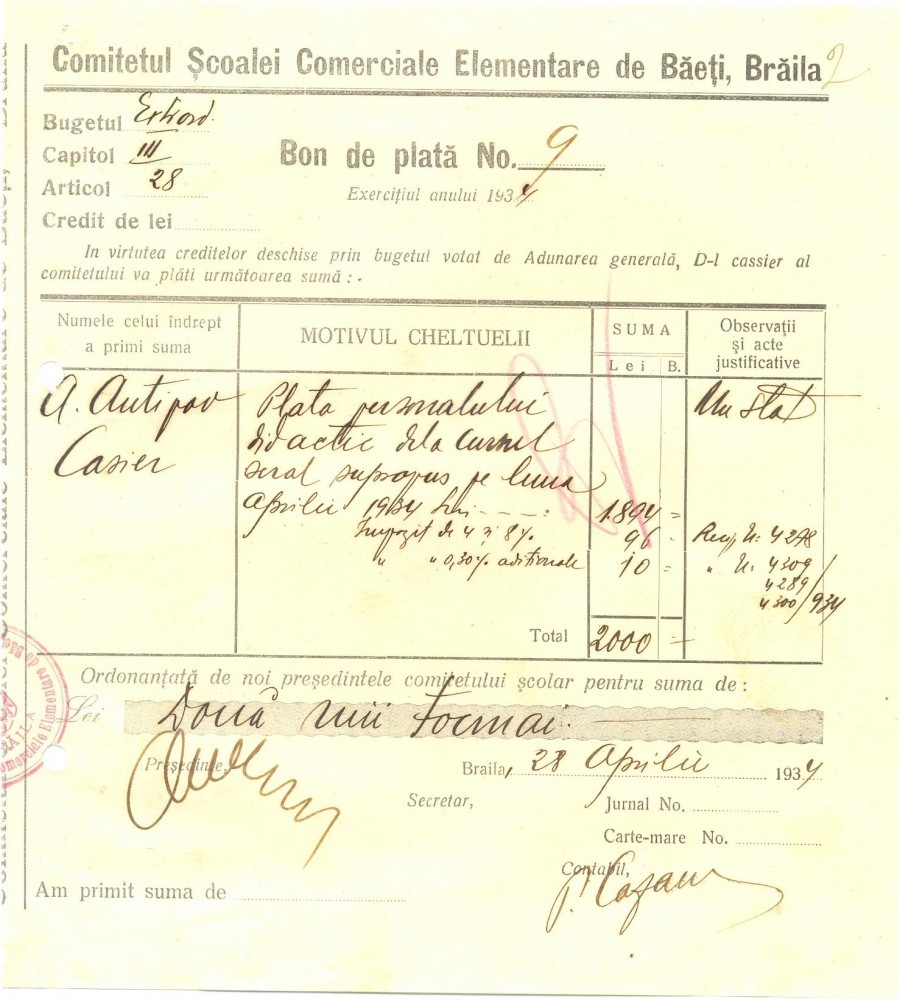 Comitetul Școalei Comerciale Elementare de Băeți, Brăila 2
Bugetul Extraord.
Capitol III
Articol 28
Credit de lei
Bon de plată No. 9
Exercițiul anului 1934
In virtutea creditelor deschise prin bugetul votat de Adunarea generală, D-l cassier al
comitetului va plăti următoarea sumă : -
Numele celui îndrept
a primi suma
MOTIVUL CHELTUELII
SUMA
Lei B.
Observații
și acte
justificative
A. Antipov
Casier
Plata personalului
didactic dela Cursul
seral supropus pe luna
Aprilie 1934 Lei - - - :
Impozit de 4 și 8%
" " 0,30% aditionale
1.894 =
96 -
10 =
Un stat
Rec. N: 4278
" N: 4309
4289
4300/934
Total 2000 =
Ordonanțată de noi președintele comitetului școlar pentru suma de :
Lei Două mii tocmai.
Președinte,
Braila, 28 Aprilie 1934
Secretar,
Jurnal No.
Carte-mare No.
Contabil,
Am primit suma de